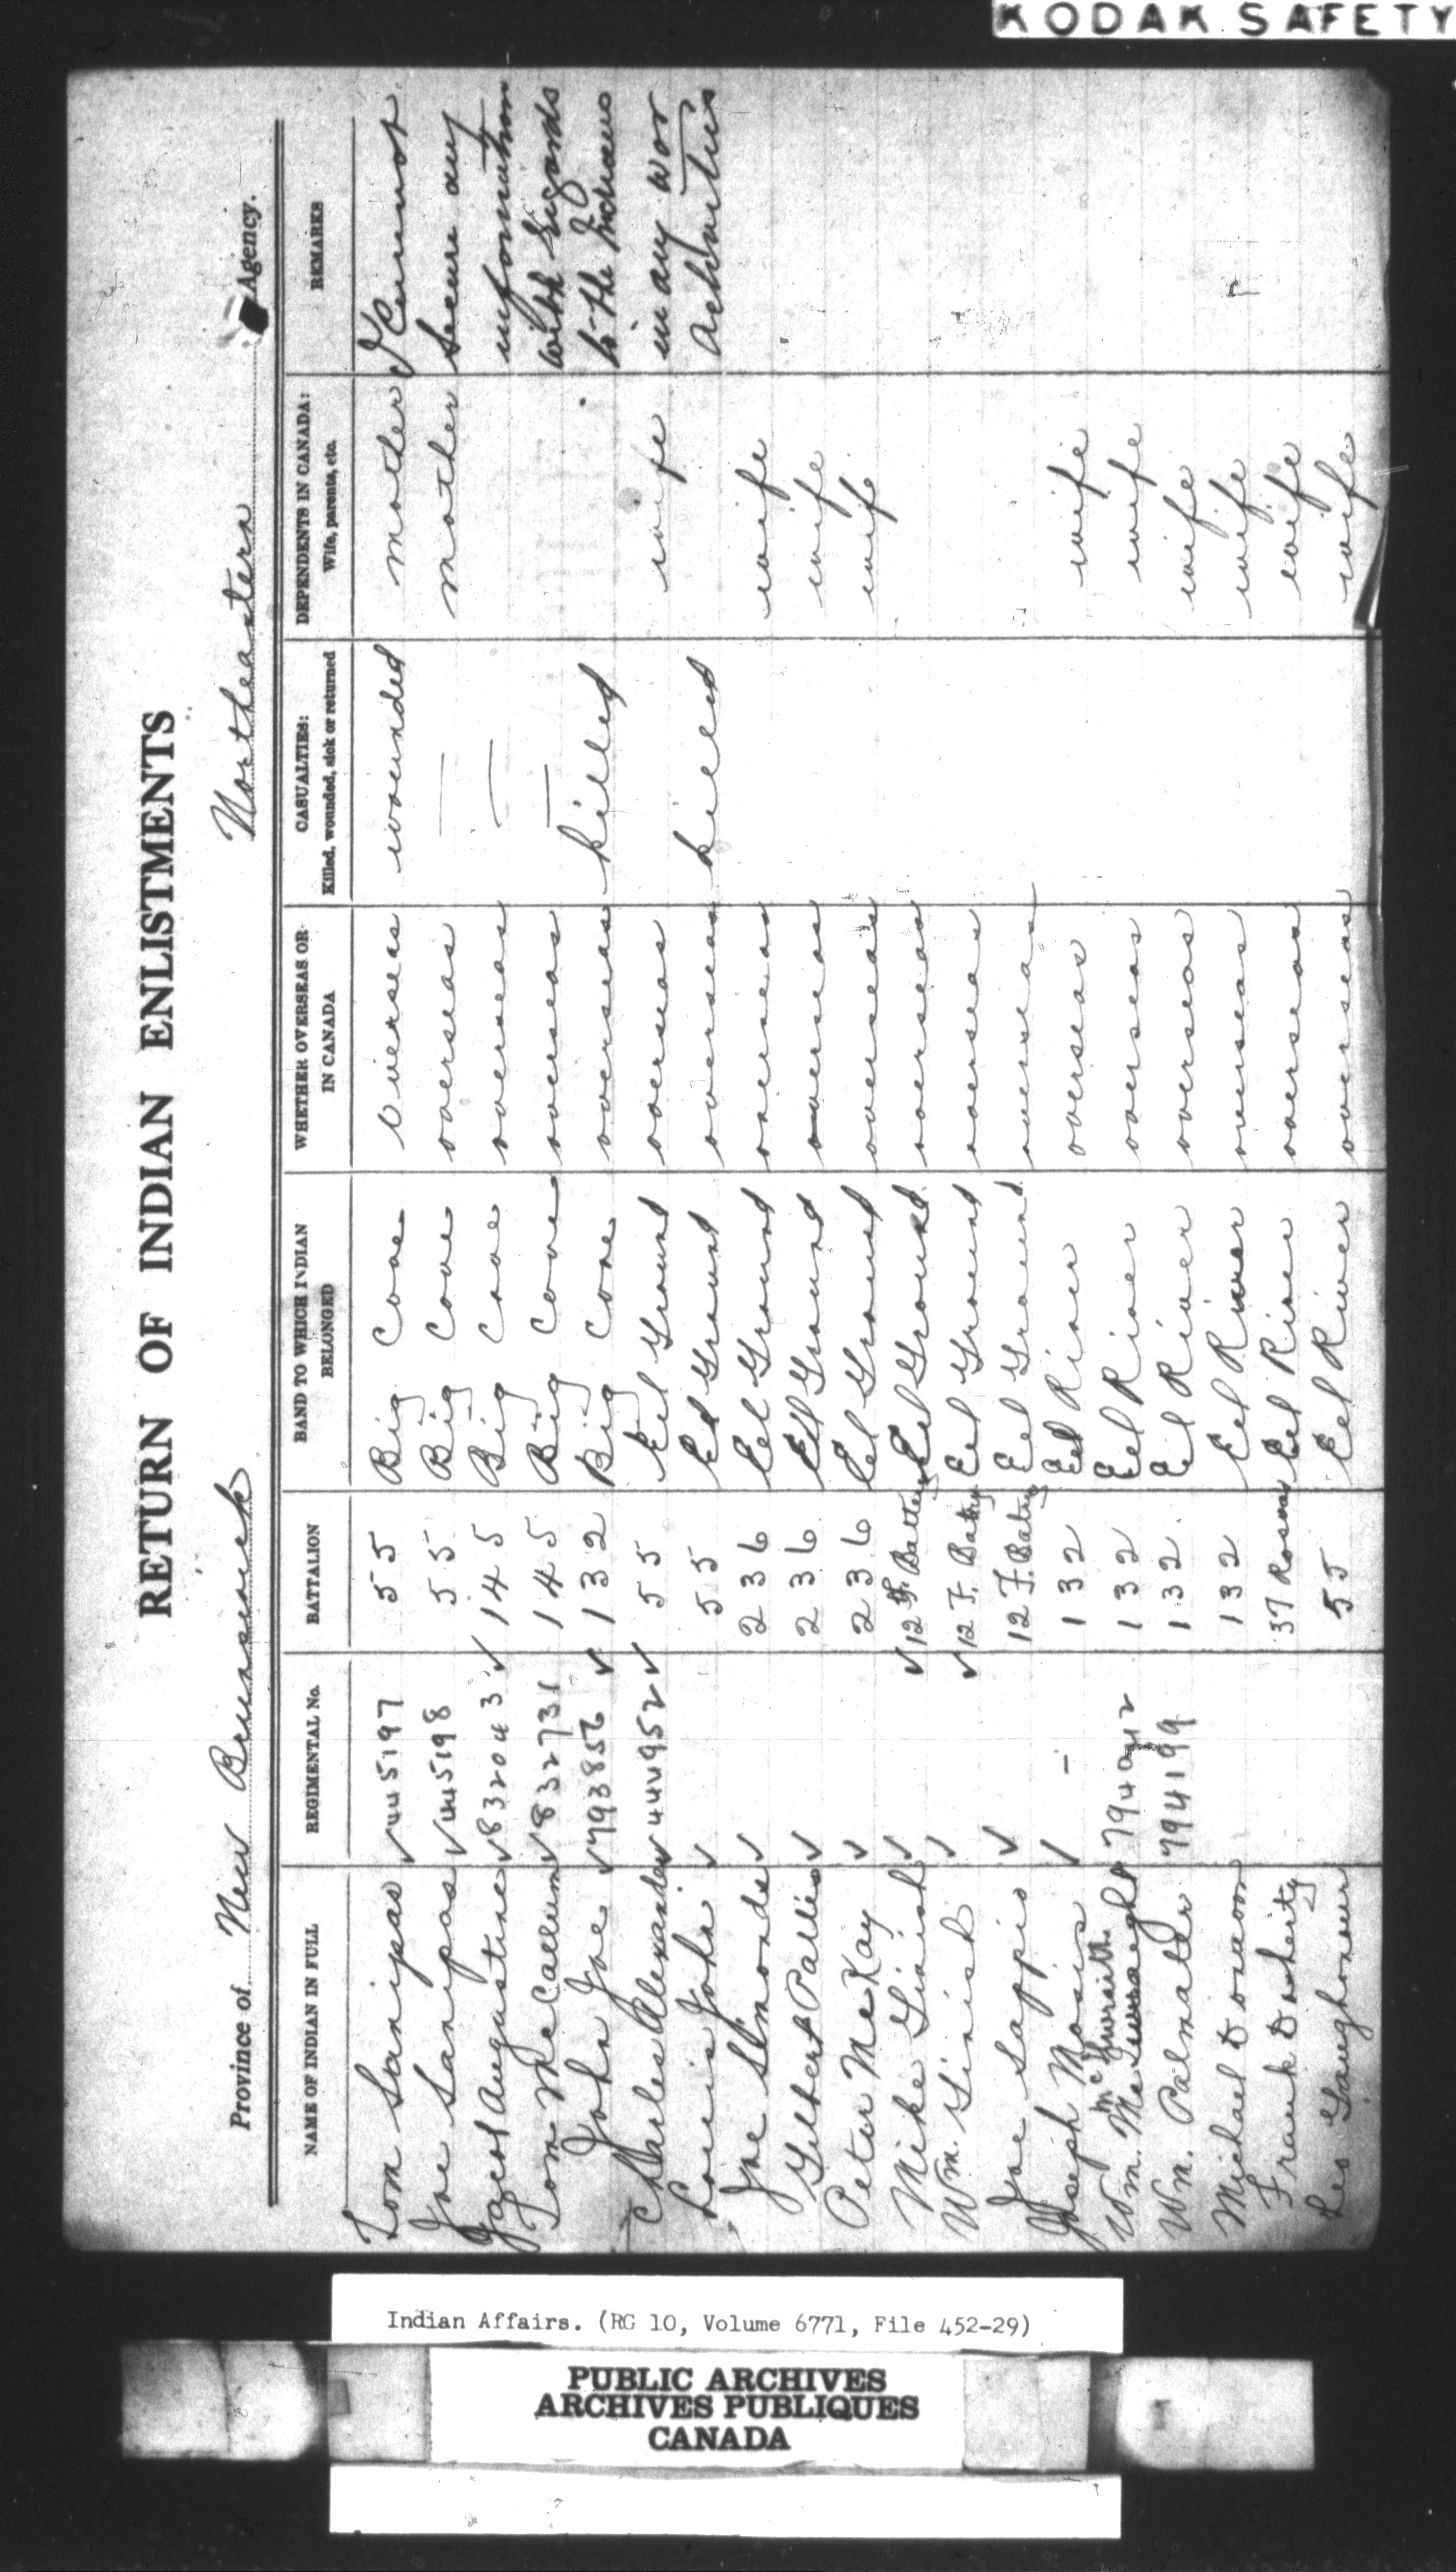 KODAK SAFETY
RETURN OF INDIAN ENLISTMENTS
Province of New Brunswick Northeastern Agency.
NAME OF INDIAN IN FULL REGIMENTAL No. BATTALION BAND TO WHICH INDIAN BELONGED WHETHER OVERSEAS OR IN CANADA CASUALTIES: Killed, wounded, sick or returned DEPENDENTS IN CANADA: Wife, parents, etc. REMARKS
Tom Sanipas ✓445197 55 Big Cove overseas wounded mother I Cannot
Joe Sanipas ✓445198 55 Big Cove overseas — mother secure any
Jacob Augustine ✓832043 ✓ 145 Big Cove overseas — information
Tom McCallum ✓832731 145 Big Cove overseas — with regards
John Joe ✓793856 ✓ 132 Big Cove overseas killed to the Indians
Charles Alexander ✓444952 ✓ 55 Eel Ground overseas wife in any war
Louis John ✓ 55 Eel Ground overseas killed activities
Joe Simonds ✓ 236 Eel Ground overseas wife
Gilbert Pallies ✓ 236 Eel Ground overseas wife
Peter McKay ✓ 236 Eel Ground overseas wife
Mike Ginish ✓ ✓ 12 F. Battery Eel Ground overseas
Wm. Ginish ✓ ✓ 12 F. Batry Eel Ground overseas
Joe Sappis ✓ 12 F. Batry Eel Ground overseas
Joseph Mosis ✓ – 132 Eel River overseas wife
Wm. 132 Eel River overseas wife
Wm. Palmater 794199 132 Eel River overseas wife
Michael Donavon 132 Eel River overseas wife
Frank Doherty 37 Eel River overseas wife
Leo 55 Eel River overseas wife
Indian Affairs. (RG 10, Volume 6771, File 452-29)
PUBLIC ARCHIVES
ARCHIVES PUBLIQUES
CANADA